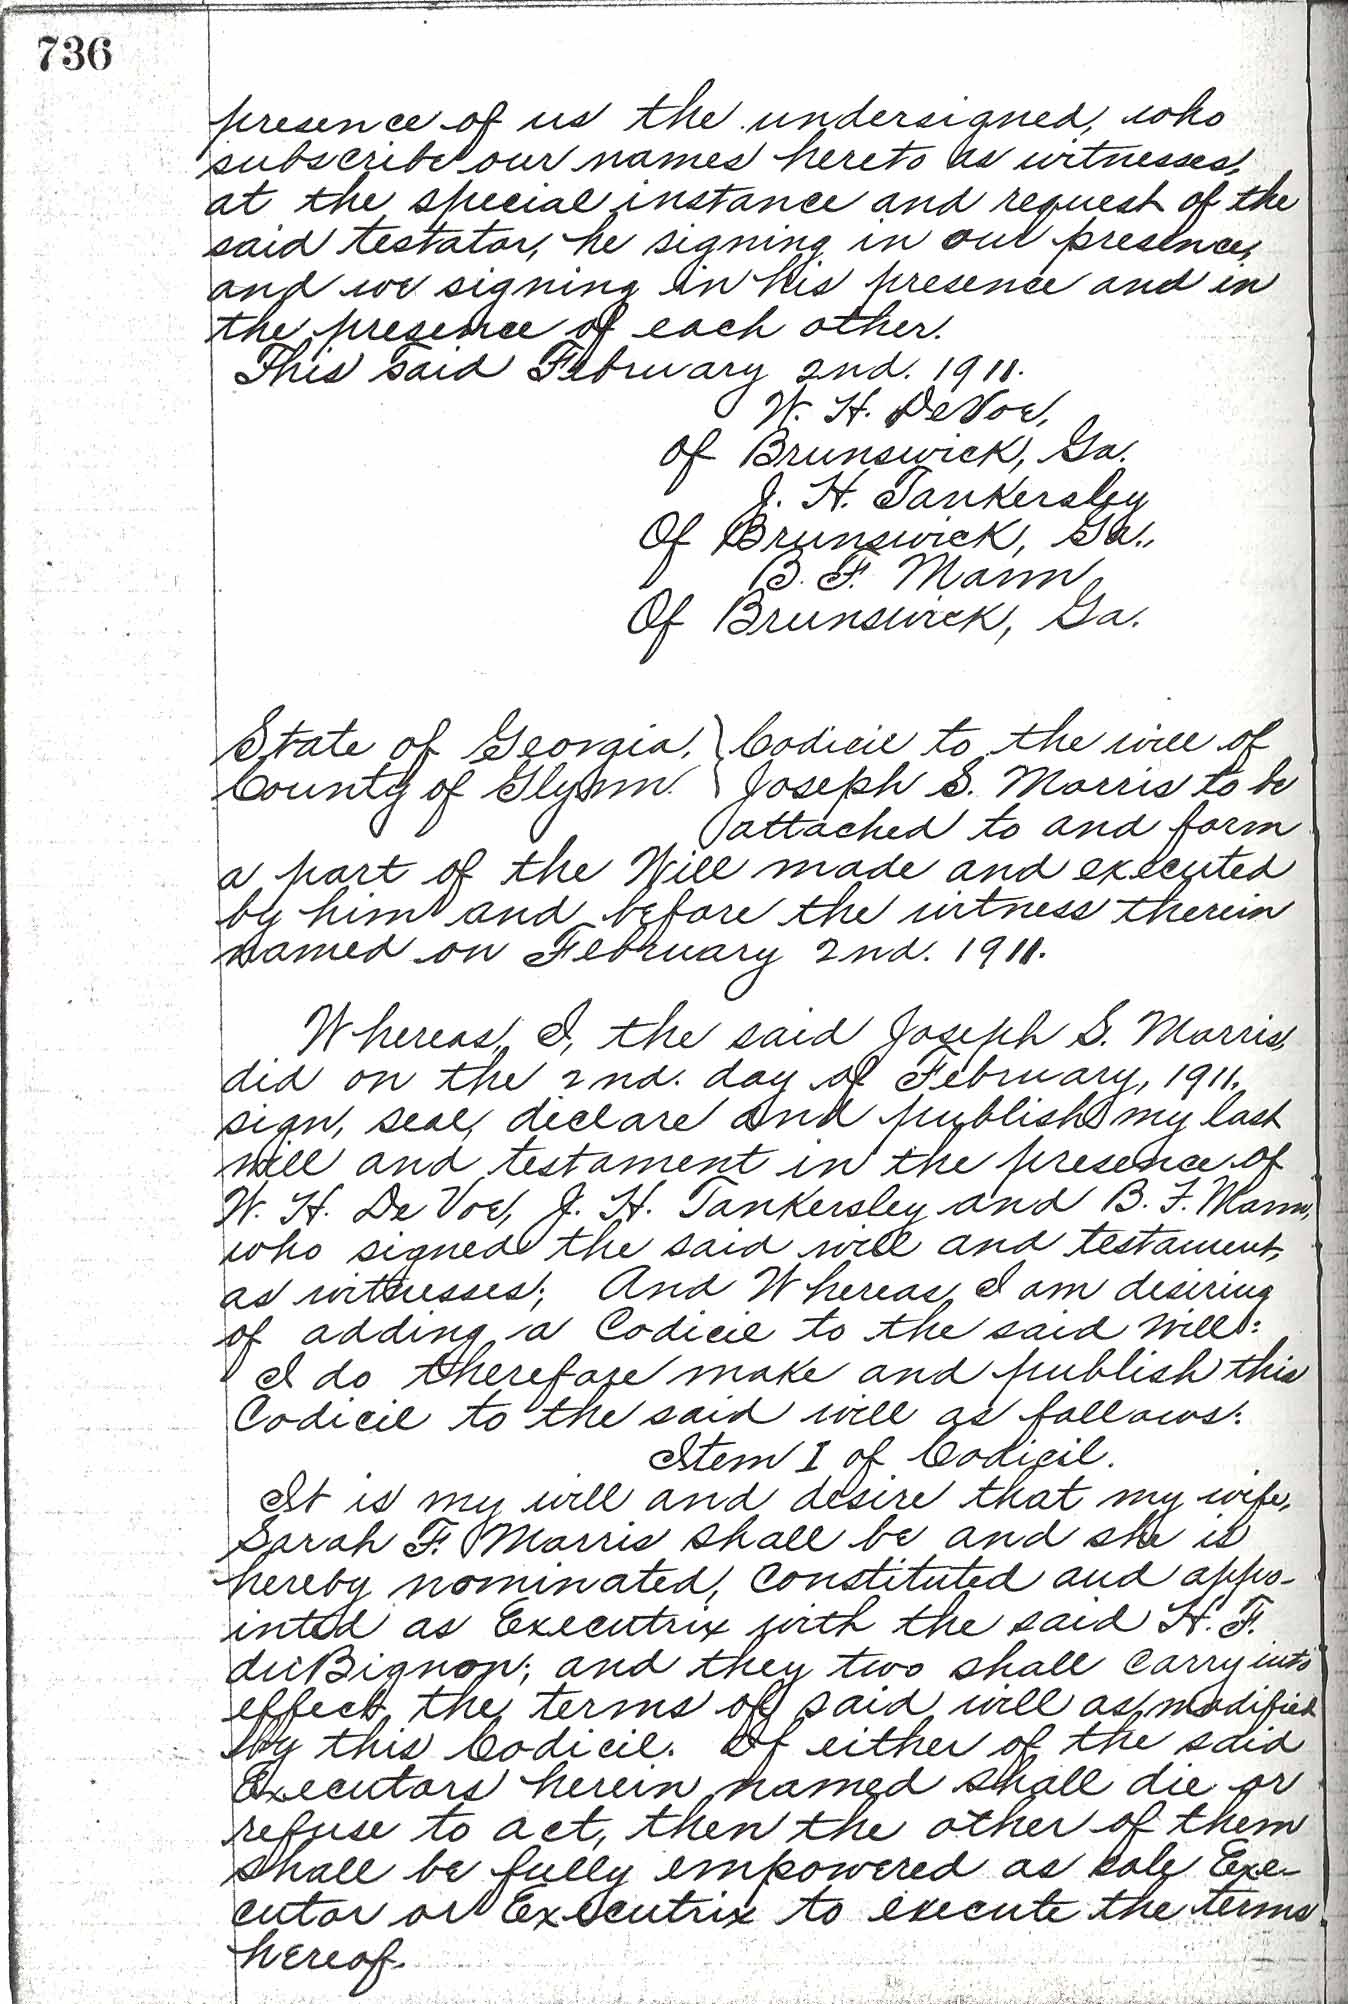 736
presence of us the undersigned, who
subscribe our names hereto as witnesses,
at the special instance and request of the
said testator, he signing in our presence,
and we signing in his presence and in
the presence of each other.
This said February 2nd. 1911.
W. H. DeVoe,
of Brunswick, Ga.
J. H. Tankersley
Of Brunswick, Ga.,
B. F. Mann
Of Brunswick, Ga.
State of Georgia, } Codicil to the will of
County of Glynn. } Joseph S. Morris to be
attached to and form
a part of the Will made and executed
by him and before the witness therein
named on February 2nd. 1911.
Whereas, I, the said Joseph S. Morris,
did on the 2nd. day of February, 1911,
sign, seal, declare and publish my last
will and testament in the presence of
W. H. De Voe, J. H. Tankersley and B. F. Mann,
who signed the said will and testament,
as witnesses; And Whereas, I am desiring
of adding a Codicil to the said Will:
I do therefore make and publish this
Codicil to the said will as follows:
Item I of Codicil.
It is my will and desire that my wife,
Sarah F. Morris shall be and she is
hereby nominated, constituted and appo-
inted as Executrix with the said H. F.
duBignon; and they two shall carry into
effect the terms of said will as modified
by this Codicil. If either of the said
Executors herein named shall die or
refuse to act, then the other of them
shall be fully empowered as sole Exe-
cutor or Executrix to execute the terms
hereof.